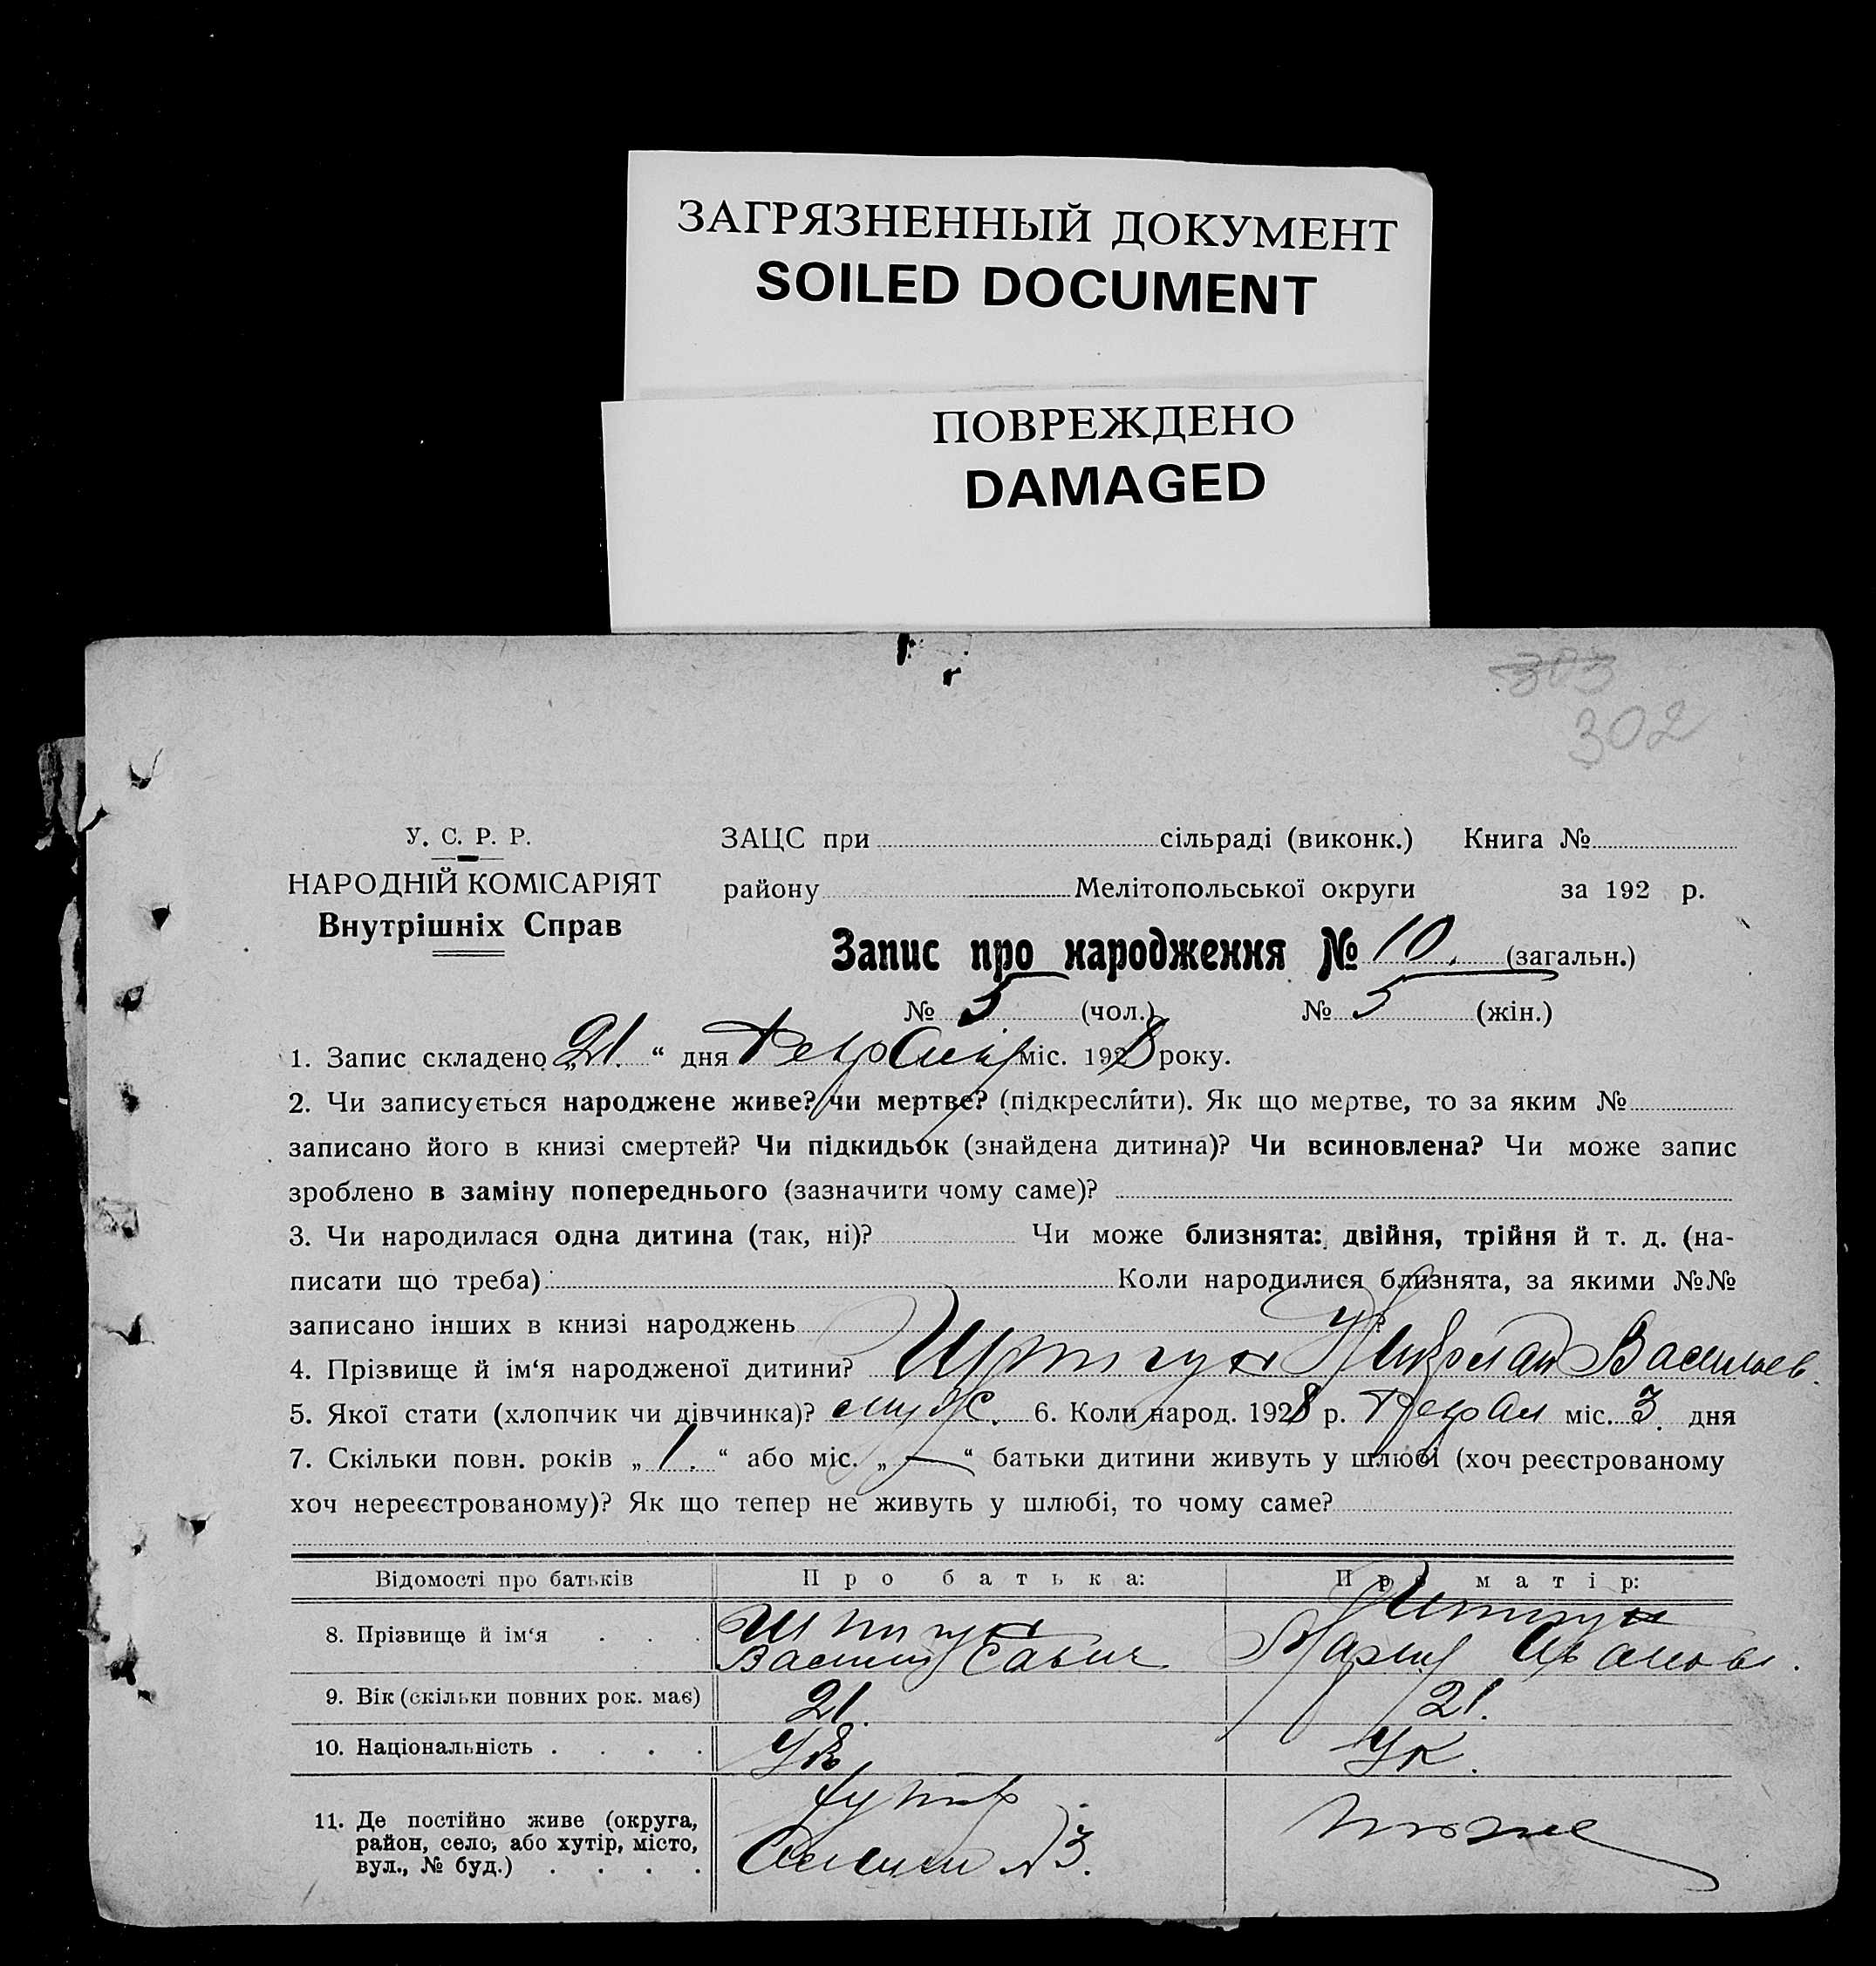 ЗАГРЯЗНЕННЫЙ ДОКУМЕНТ
SOILED DOCUMENT
ПОВРЕЖДЕНО
DAMAGED
303
302
У. С. Р. Р.
НАРОДНІЙ КОМІСАРІЯТ
Внутрішніх Справ
ЗАЦС при сільраді (виконк.) Книга №
району Мелітопольської округи за 192 р.
Запис про народження № 10. (загальн.)
№ 5 (чол.) № 5 (жін.)
1. Запис складено „21.“ дня міс. 1928 року.
2. Чи записується народжене живе? чи мертве? (підкреслити). Як що мертве, то за яким №
записано його в книзі смертей? Чи підкидьок (знайдена дитина)? Чи всиновлена? Чи може запис
зроблено в заміну попереднього (зазначити чому саме)?
3. Чи народилася одна дитина (так, ні)? Чи може близнята: двійня, трійня й т. д. (на-
писати що треба) Коли народилися близнята, за якими №№
записано інших в книзі народжень
4. Прізвище й ім‘я народженої дитини? Николай Васильев.
5. Якої стати (хлопчик чи дівчинка)? муж. 6. Коли народ. 1928 р. міс. 3. дня
7. Скільки повн. років „1.“ або міс. „—“ батьки дитини живуть у шлюбі (хоч реєстрованому
хоч нереєстрованому)? Як що тепер не живуть у шлюбі, то чому саме?
Відомості про батьків Про батька: Про матір:
8. Прізвище й ім‘я . . .
Василий Савич Мария Иванов.
9. Вік (скільки повних рок. має) 21. 21.
10. Національність . . . . Ук Ук.
11. Де постійно живе (округа,
район, село, або хутір, місто,
вул., № буд.) . . . .
хутор
№3.
тоже